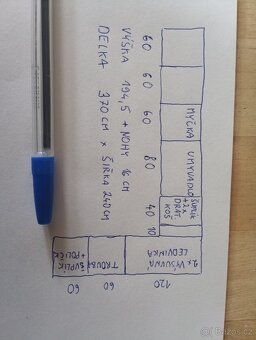 MYČKA
UMYVADLO
ŠUPLÍK
+2x
DRÁT.
KOŠ
2x VÝSUVNÁ
LEDVINKA
120
60 60 60 80 40 10
TROUBA
60
VÝŠKA 194,5 + NOHY 16 CM
ŠUPLÍK
60
DELKA 370 CM x ŠÍŘKA 240 CM